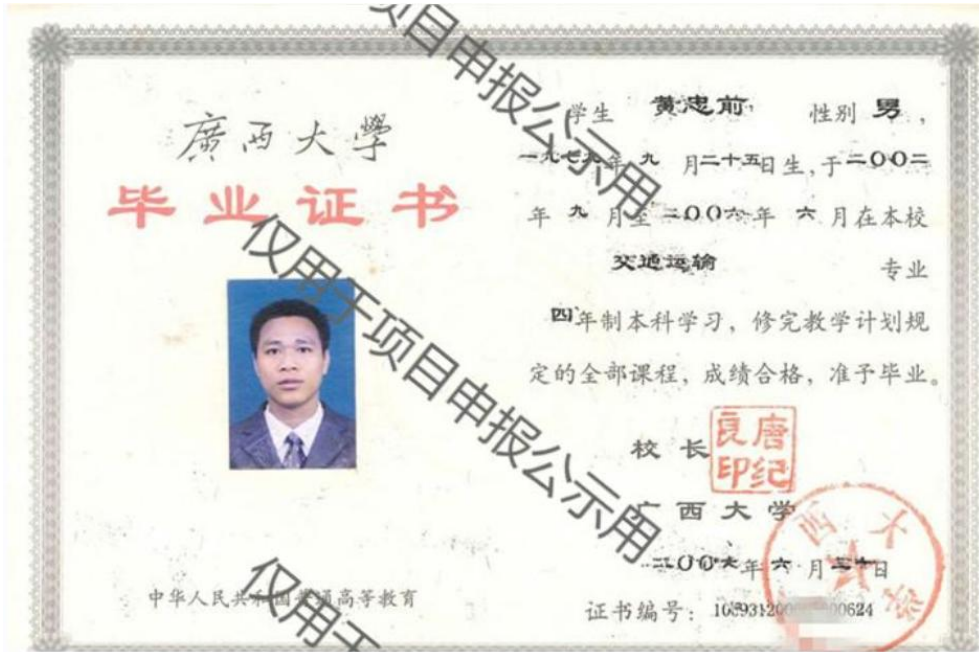 廣西大學
毕业证书
中华人民共和国普通高等教育
学生 黄忠前 性别 男，
一九七九年 九 月二十五日生，于二〇〇二
年 九 月至二〇〇六年 六 月在本校
交通运输 专业
四年制本科学习，修完教学计划规
定的全部课程，成绩合格，准予毕业。
校 长
唐纪良印
广西大学
二〇〇六年 六 月 日
证书编号：
仅用于项目申报公示用
项目申报公示用
仅用于
西大学